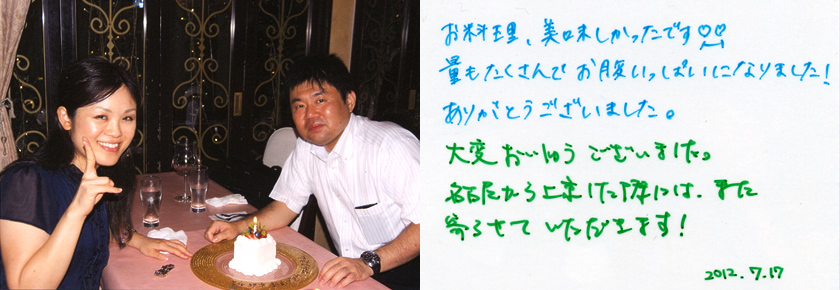 お料理、美味しかったです♡♡
量もたくさんで お腹いっぱいになりました!
ありがとうございました。
大変おいしゅうございました。
名古屋から上京した際には、また
寄らせていただきます!
2012.7.17